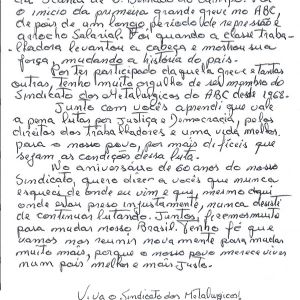 da Scania de S. Bernardo do Campo. Foi
o início da primeira grande greve no ABC,
depois de um longo período de repressão e
arrocho salarial. Foi quando a classe traba-
lhadora levantou a cabeça e mostrou sua
força, mudando a história do país.
Por ter participado daquela greve e tantas
outras, tenho muito orgulho de ser membro do
Sindicato dos Metalúrgicos do ABC desde 1968.
Junto com vocês aprendi que vale
a pena lutar por justiça e Democracia, pelos
direitos dos trabalhadores e uma vida melhor
para o nosso povo, por mais difíceis que
sejam as condições dessa luta.
No aniversário de 60 anos do nosso
Sindicato, quero dizer a vocês que nunca
esqueci de onde eu vim e que, mesmo aqui
onde estou preso injustamente, nunca desisti
de continuar lutando. Juntos, fizemos muito
para mudar nosso Brasil. Tenho fé que
vamos nos reunir novamente para mudar
muito mais, porque o nosso povo merece viver
num país melhor e mais justo.
Viva o Sindicato dos Metalúrgicos!